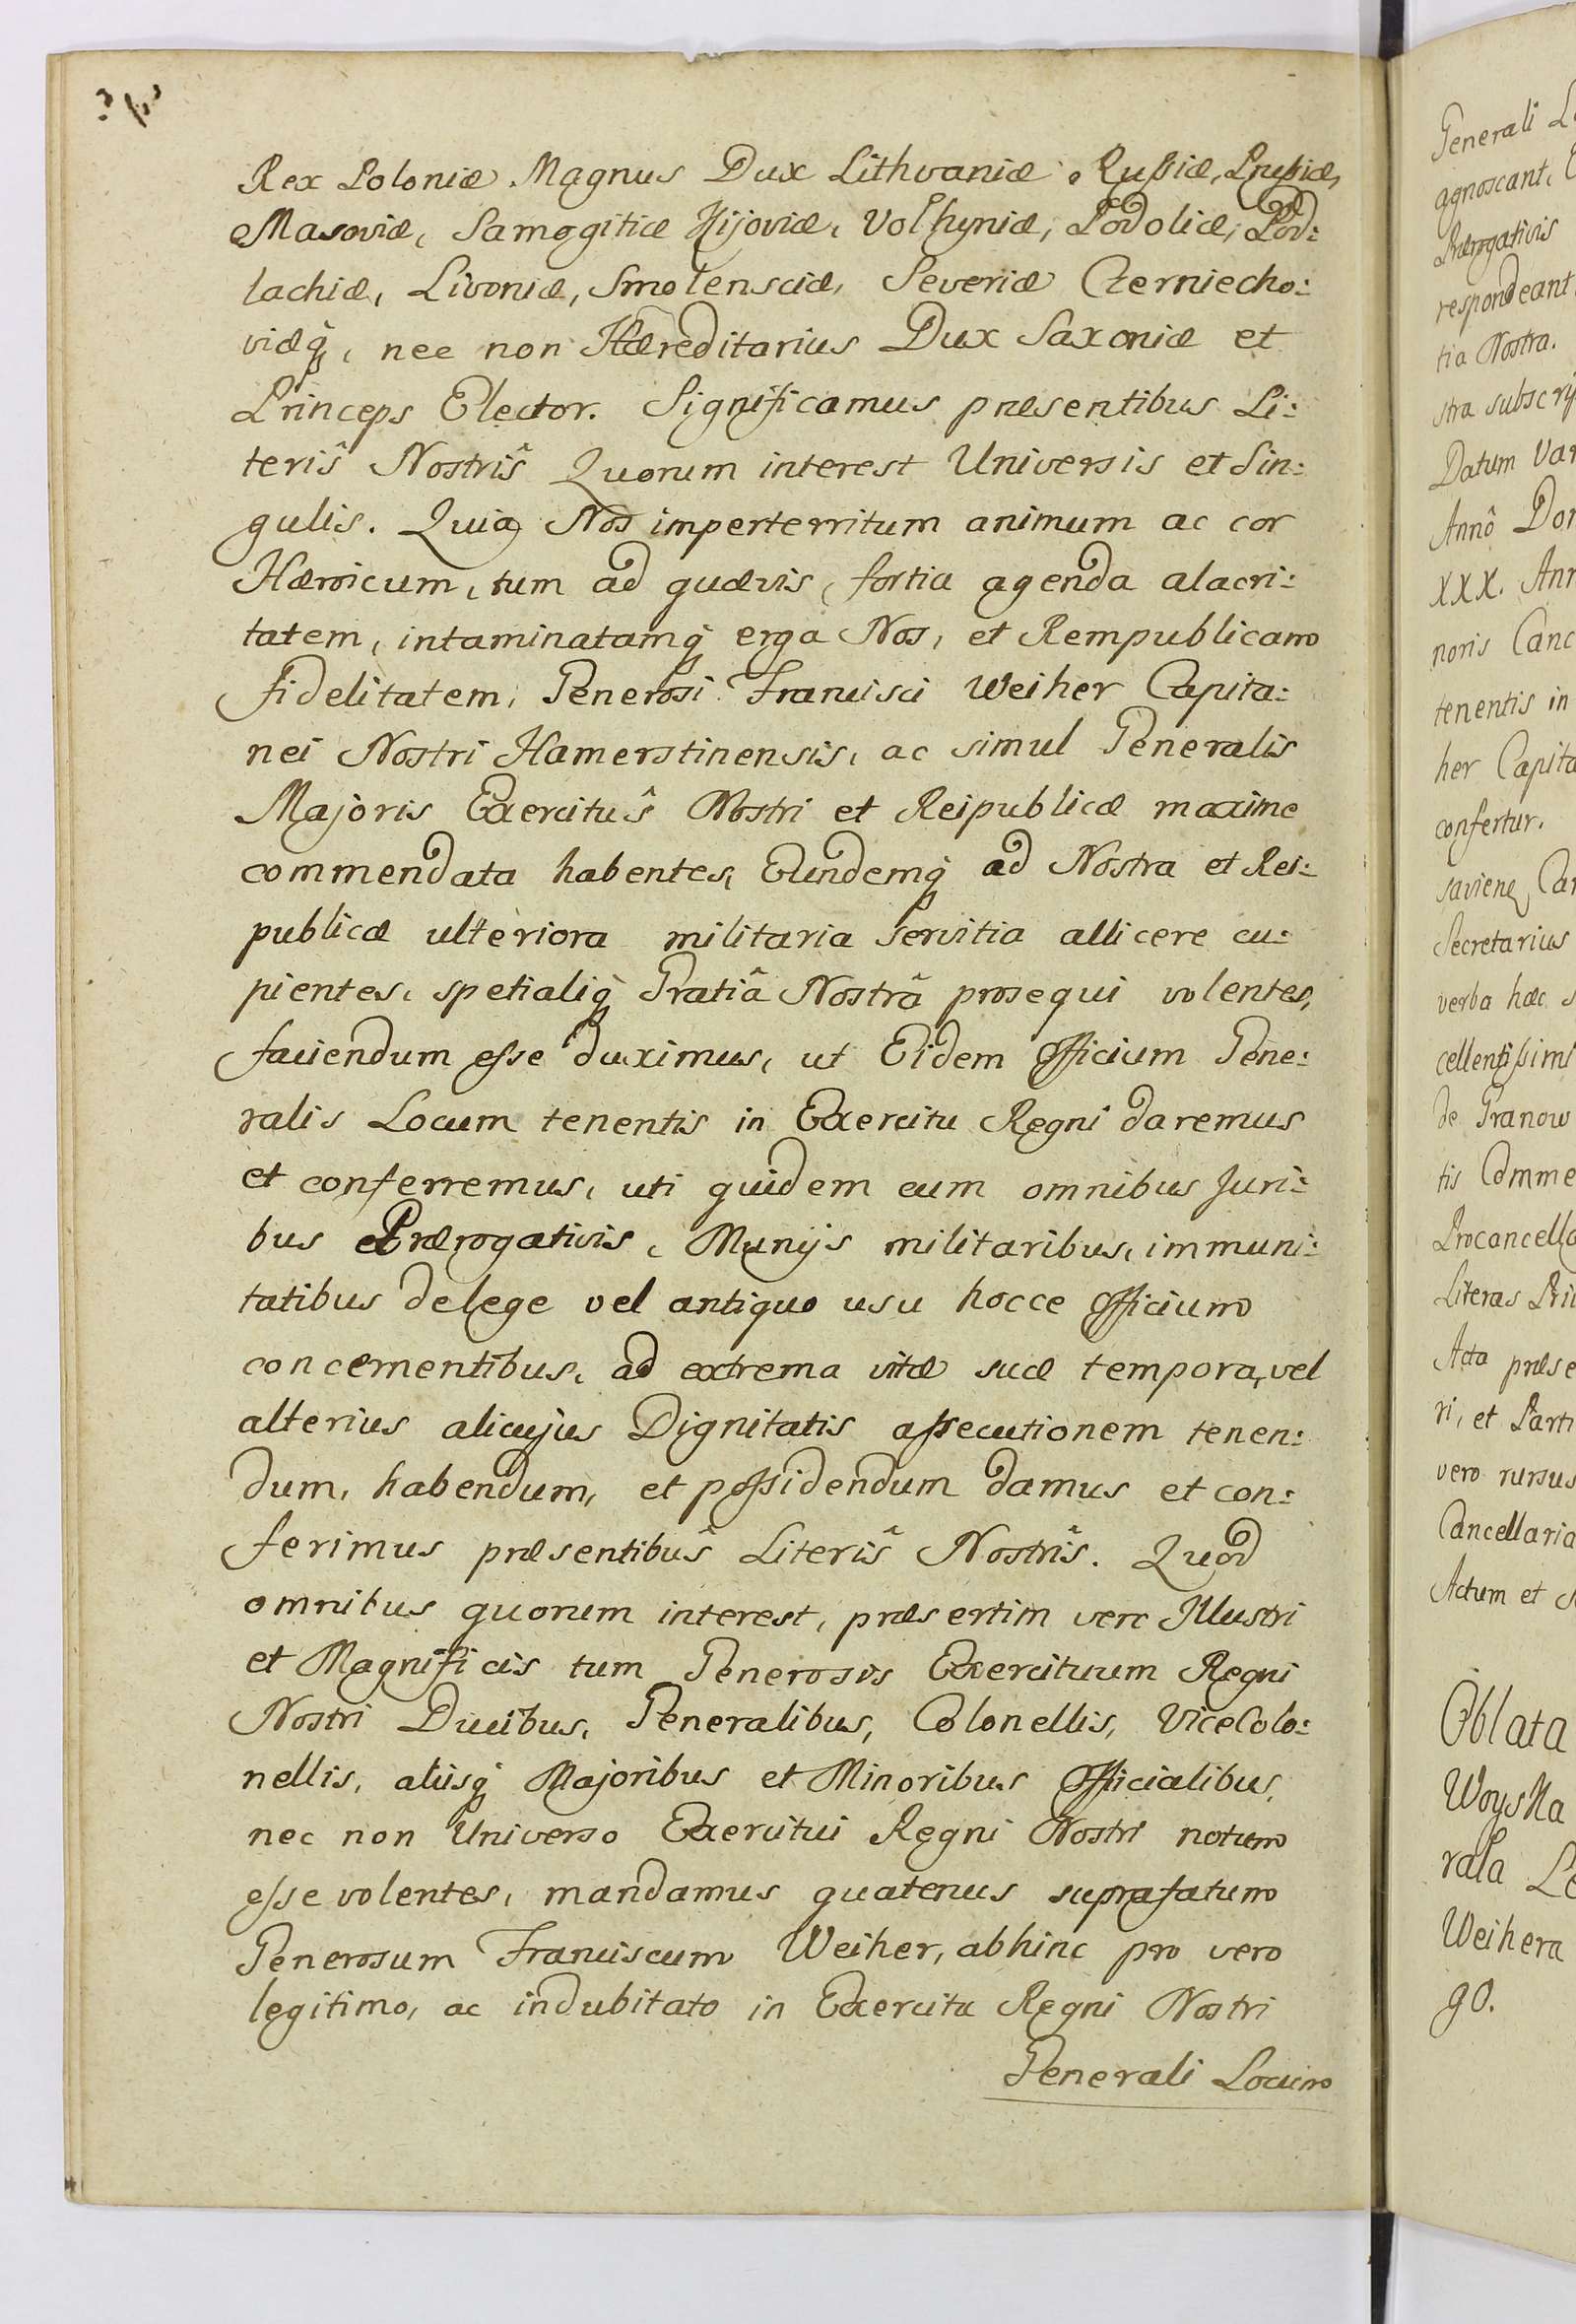 Rex Poloniæ Magnus Dux Lithvaniæ, Rußiæ, Prußiæ,
Masoviæ, Samogitiæ Kijoviæ, Volhyniæ, Podoliæ, Pod:
lachiæ, Livoniæ, Smolensciæ, Severiæ Czerniecho:
viæq, nec non Hæreditarius Dux Saxoniæ et
Princeps Elector. Significamus præsentibus Li:
terîs Nostrîs Quorum interest Universis et Sin:
gulis. Quia Nos imperterritum animum ac cor
Hæroicum, tum ad quævis, fortia agenda alacri:
tatem, intaminatamq erga Nos, et Rempublicam
fidelitatem, Generosi Francisci Weiher Capita:
nei Nostri Hamerstinensis, ac simul Generalis
Majoris Exercitûs Nostri et Reipublicæ maxime
commendata habentes, Eundemq ad Nostra et Rei:
publicæ ulteriora militaria servitia allicere cu:
pientes, spetialiq Gratiâ Nostrâ prosequi volentes,
faciendum esse duximus, ut Eidem Officium Gene:
ralis Locum tenentis in Exercitu Regni daremus
et conferremus, uti quidem cum omnibus Juri:
bus et Prærogativis, Munijs militaribus, immuni:
tatibus de lege vel antiquo usu hocce Officium
concernentibus, ad extrema vitæ suæ tempora, vel
alterius alicujus Dignitatis assecutionem tenen:
dum, habendum, et possidendum damus et con:
ferimus præsentibûs Literîs Nostrîs. Quod
omnibus quorum interest, præsertim vero Illustri
et Magnificis tum Generosis Exercituum Regni
Nostri Ducibus, Generalibus, Colonellis, ViceColo:
nellis, aliisq Majoribus et Minoribus Officialibus,
nec non Universo Exercitui Regni Nostri notum
esse volentes, mandamus quatenus suprafatum
Generosum Franciscum Weiher, abhinc pro vero
legitimo, ac indubitato in Exercitu Regni Nostri
Generali Locum
Generali
agnoscant,
Prærogativis
respondeant
tia Nostra.
stra
Datum
Annô
XXX.
noris
tenentis in
her
confertur.
Secretarius
verba hæc
de Granow
tis
Literas
Acta
ri, et
vero rursus
Actum et
Oblata
Woyska
rała
Weihera
go.